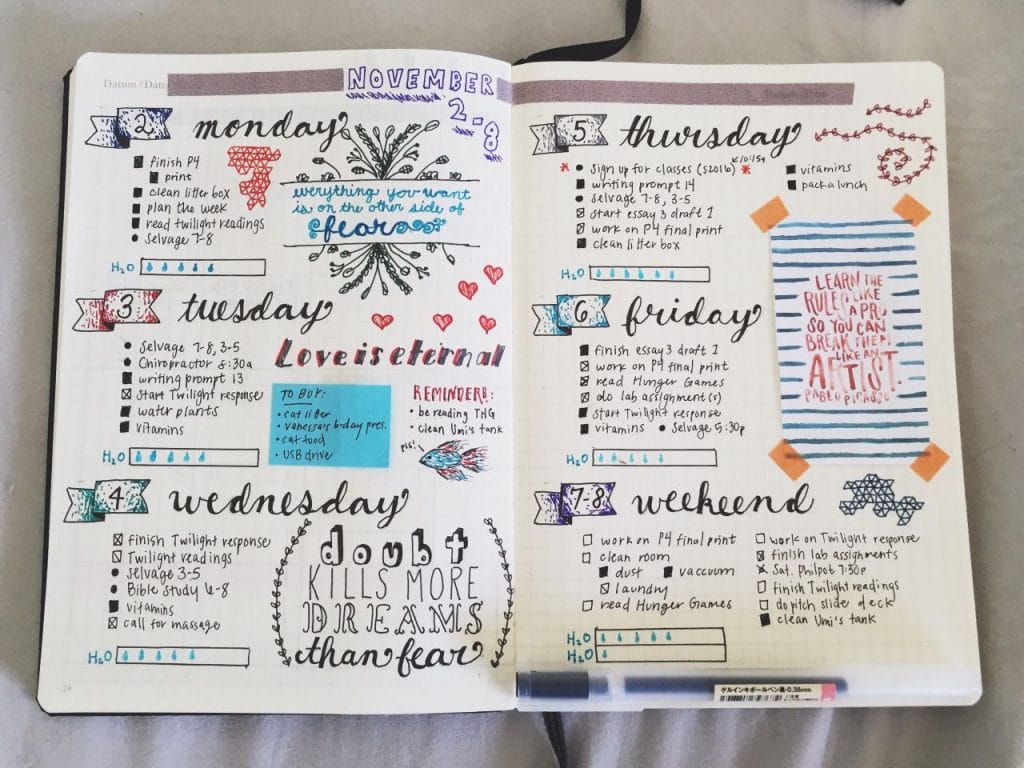 Datum/Date
NOVEMBER
2-8
2 monday
finish P4
print
clean litter box
plan the week
read twilight readings
Selvage 7-8
H2O
everything you want
is on the other side of
fear
3 tuesday
Selvage 7-8, 3-5
Chiropractor 8:30a
writing prompt 13
Start Twilight response
water plants
vitamins
H2O
Love is eternal
TO BUY:
cat litter
vanessa's b-day pres.
cat food
USB drive
REMINDER!:
be reading THG
clean Umi's tank
pls!
4 wednesday
finish Twilight response
Twilight readings
Selvage 3-5
Bible Study 6-8
vitamins
call for massage
H2O
doubt
KILLS MORE
DREAMS
than fear
24
5 thursday
10:15a
Sign up for classes (S2016)
writing prompt 14
Selvage 7-8, 3-5
Start essay 3 draft 1
work on P4 final print
clean litter box
vitamins
pack a lunch
H2O
6 friday
finish essay 3 draft 1
work on P4 final print
read Hunger Games
do lab assignment(s)
Start Twilight response
vitamins Selvage 5:30p
H2O
LEARN THE
RULES LIKE
A PRO
SO YOU CAN
BREAK THEM
LIKE AN
ARTIST.
PABLO PICASSO
7-8 weekend
work on P4 final print
clean room
dust vaccuum
laundry
read Hunger Games
work on Twilight response
finish lab assignments
Sat. Philpot 7:30p
finish Twilight readings
do pitch slide deck
clean Umi's tank
H2O
H2O
ゲルインキボールペン黒・0.38mm